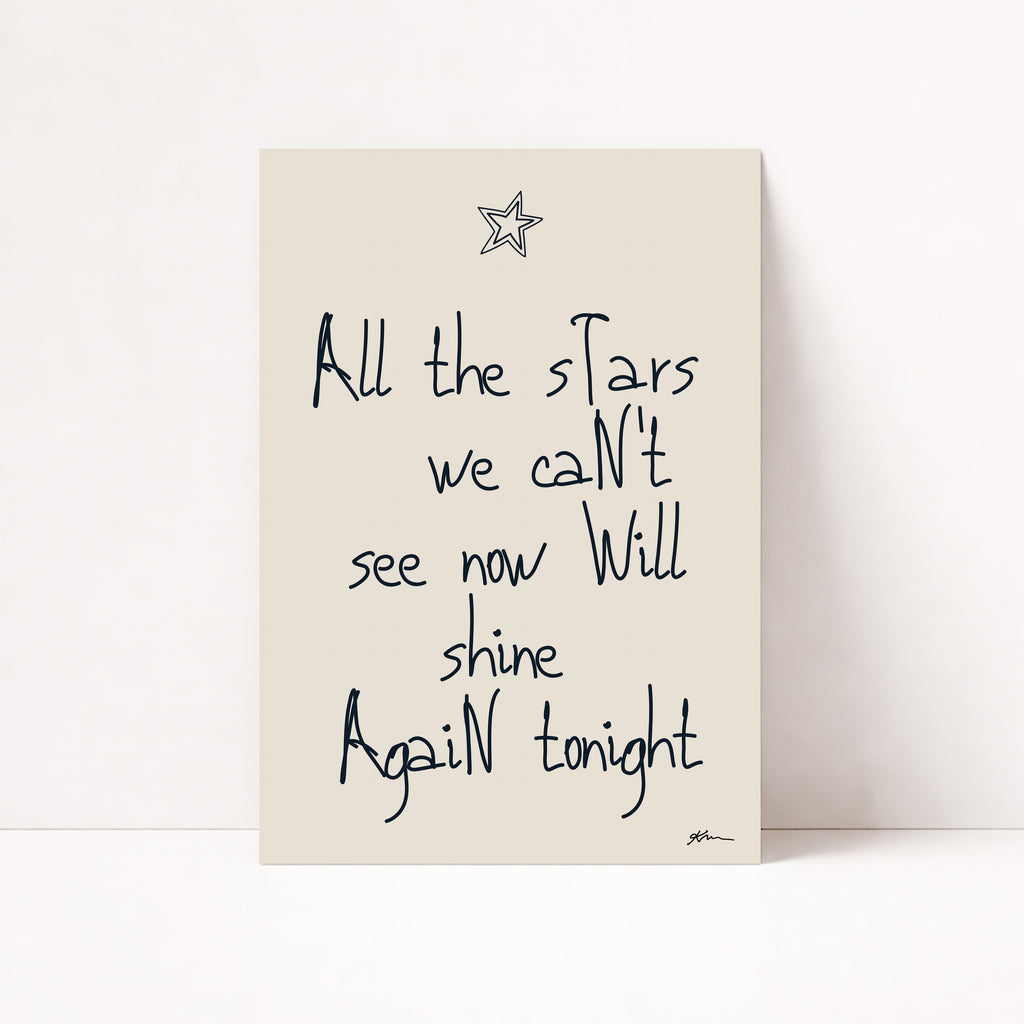 All the sTars
we caN't
see now Will
shine
AgaiN tonight